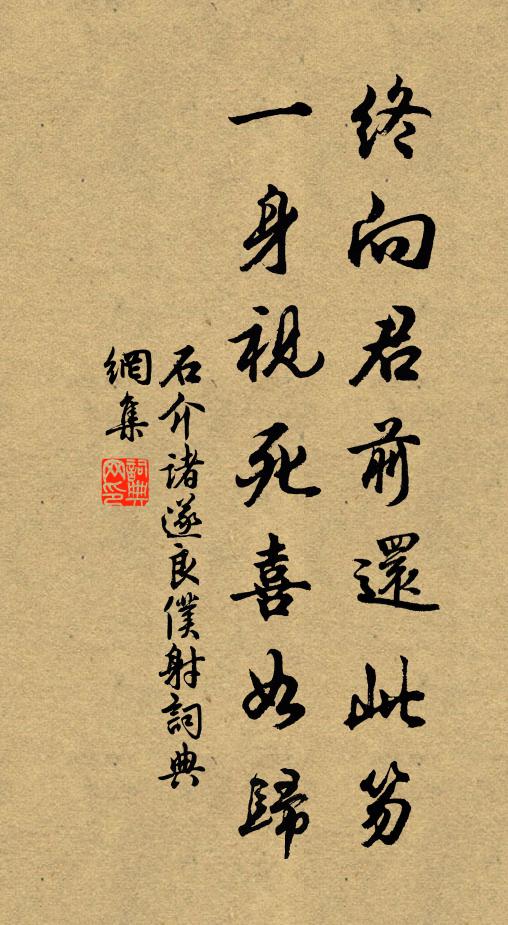 終向君前還此笏
一身視死喜如歸
石介諸遂良僕射詞典
網集
詞典網印